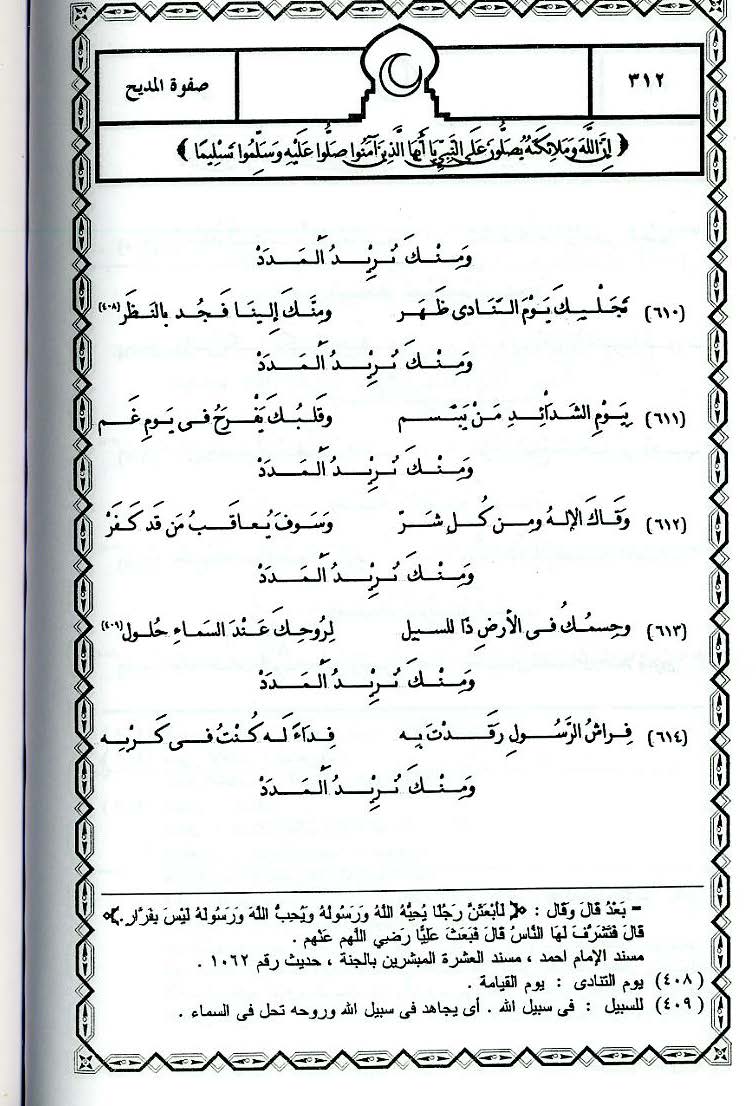 ٣١٢
صفوة المديح
﴿ إِنَّ اللَّهَ وَمَلَائِكَتَهُ يُصَلُّونَ عَلَى النَّبِيِّ يَا أَيُّهَا الَّذِينَ آمَنُوا صَلُّوا عَلَيْهِ وَسَلِّمُوا تَسْلِيمًا ﴾
وَمِنْكَ نُرِيْدُ الْمَدَدْ
(٦١٠) تَجَلِّيكَ يَوْمَ التَّنَادى ظَهَر ومِنْكَ إِلينَا فَجُد بالنَظَر (٤٠٨)
وَمِنْكَ نُرِيْدُ الْمَدَدْ
(٦١١) بِيَوْمِ الشَدائِدِ مَنْ يَبْتَسم وقَلبُكَ يَفْرَحُ فى يَومِ غَم
وَمِنْكَ نُرِيْدُ الْمَدَدْ
(٦١٢) وَقَاكَ الإلهُ ومِن كُلِ شَرّ وَسَوفَ يُعاقَبُ مَن قَد كَفَرْ
وَمِنْكَ نُرِيْدُ الْمَدَدْ
(٦١٣) وجِسمُكُ فى الأرضِ ذَا للسبيل لِرُوحِكَ عَنْدَ السَماءِ حُلول (٤٠٩)
وَمِنْكَ نُرِيْدُ الْمَدَدْ
(٦١٤) فِراشُ الرَّسُولِ رَقَدْتَ بِه فِدَاءً لَه كُنْتُ فى كَرْبِه
وَمِنْكَ نُرِيْدُ الْمَدَدْ
= بَعْدُ قالَ وَقَال : ﴿ لَأَبْعَثَنَّ رَجُلًا يُحِبُّهُ اللَّهُ وَرَسُولُهُ وَيُحِبُّ اللَّهَ وَرَسُولَهُ لَيْسَ بِفَرَّارٍ ﴾
قَالَ فَتَشَرَّفَ لَهَا النَّاسُ قَالَ فَبَعَثَ عَلِيًّا رَضِي اللهم عَنْهم .
مسند الإمام احمد ، مسند العشرة المبشرين بالجنة ، حديث رقم ١٠٦٢ .
(٤٠٨) يوم التنادى : يوم القيامة .
(٤٠٩) للسبيل : فى سبيل الله . أى يجاهد فى سبيل الله وروحه تحل فى السماء .